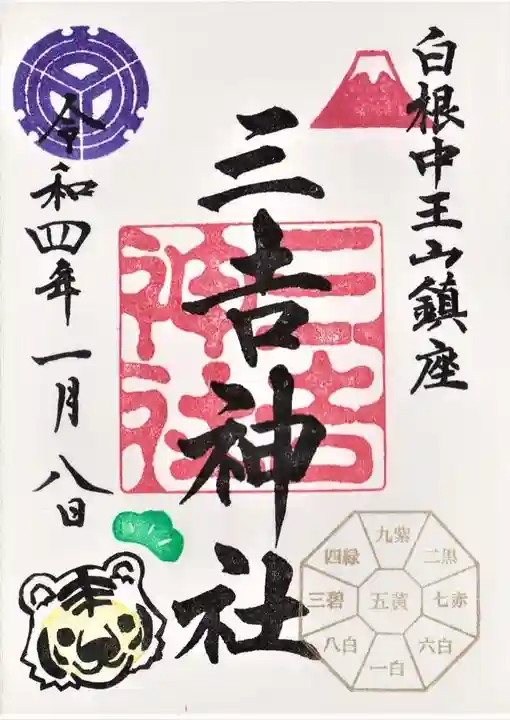 白根中王山鎮座
三吉神社
三吉
神社
令和四年一月八日
九紫
四緑 二黒
三碧 五黄 七赤
八白 六白
一白